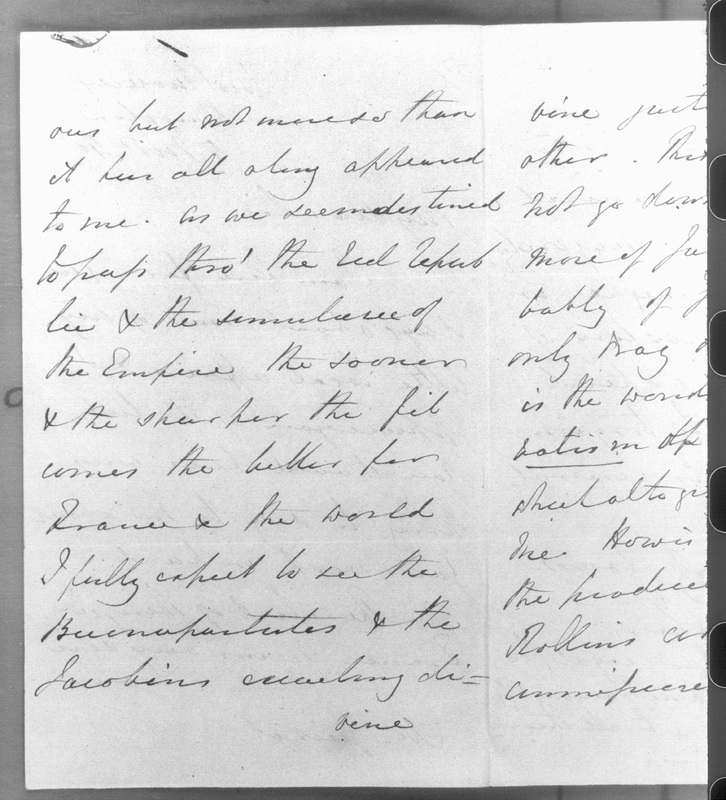 ous but not more so than
it has all along appeared
to me. as we seem destined
to pass thro' the Red Repub
lic & the simulacre of
the Empire the sooner
& the sharper the fit
comes the better for
France & the world
I fully expect to see the
Buonapartistes & the
Jacobins di=
vine
vine just
other. This
not go down
more of
bably of
only drag
is the world
vatism
me. How is
the produce
Rollins